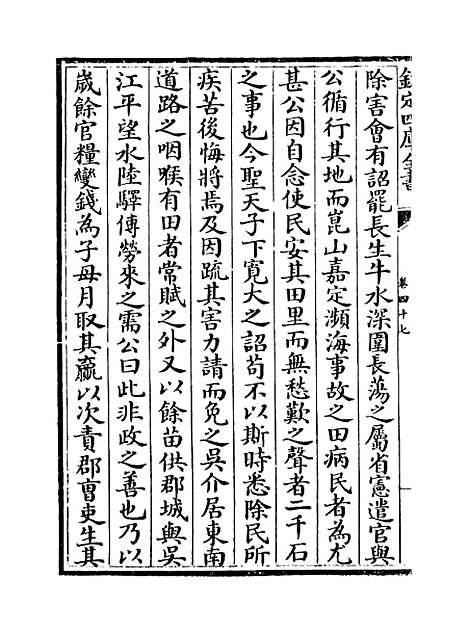 欽定四庫全書
卷四十七
除害會有詔罷長生牛水深圍長蕩之屬省憲遣官與
公循行其地而崑山嘉定瀕海事故之田病民者為尤
甚公因自念使民安其田里而無愁歎之聲者二千石
之事也今聖天子下寛大之詔苟不以斯時悉除民所
疾苦後悔將焉及因疏其害力請而免之吳介居東南
道路之咽喉有田者常賦之外又以餘苗供郡城與吳
江平望水陸驛傳勞來之需公曰此非政之善也乃以
歲餘官糧變錢為子母月取其贏以次責郡曹吏生其